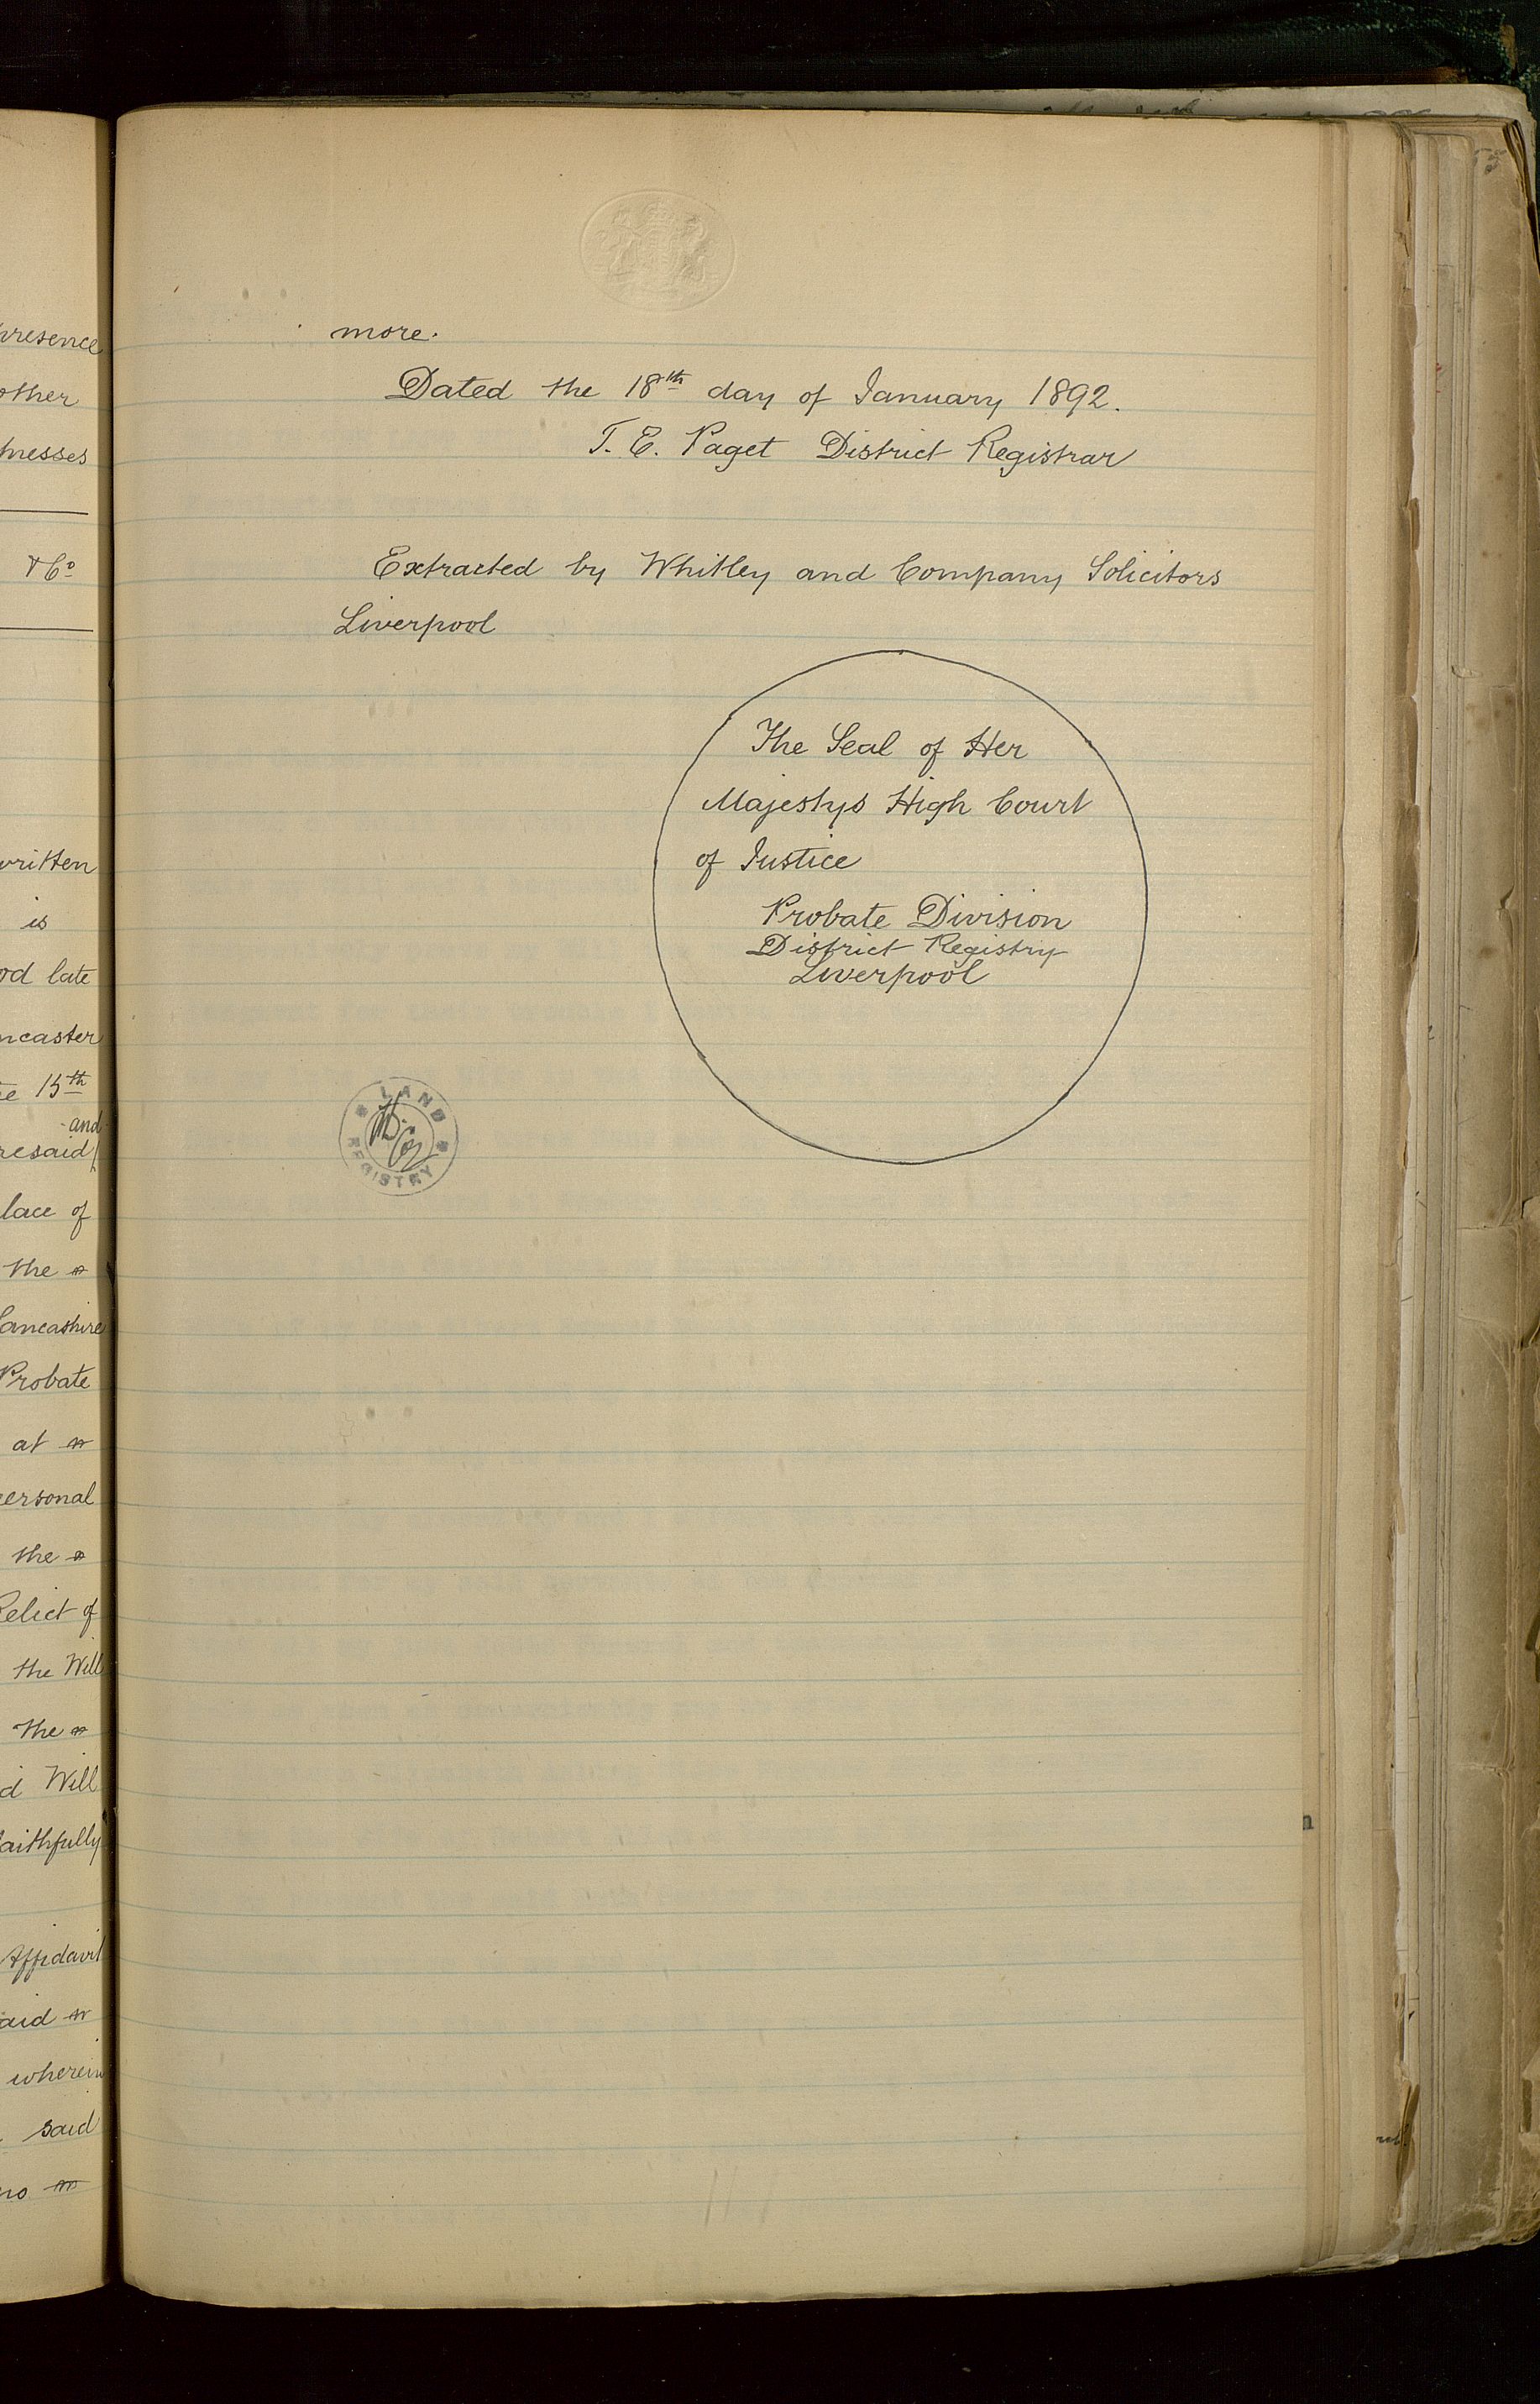 presence
other
nesses
& Co
written
is
od late
ncaster
e 15th
and
resaid
lace of
the
Lancashire
Probate
at
personal
the
Relict of
the Will
the
d Will
aithfully
Affidavit
aid
wherein
said
no
more.
Dated the 18th day of January 1892.
T. E. Paget District Registrar
Extracted by Whitley and Company Solicitors
Liverpool
The Seal of Her
Majestys High Court
of Justice
Probate Division
District Registry
Liverpool
LAND
REGISTRY
n